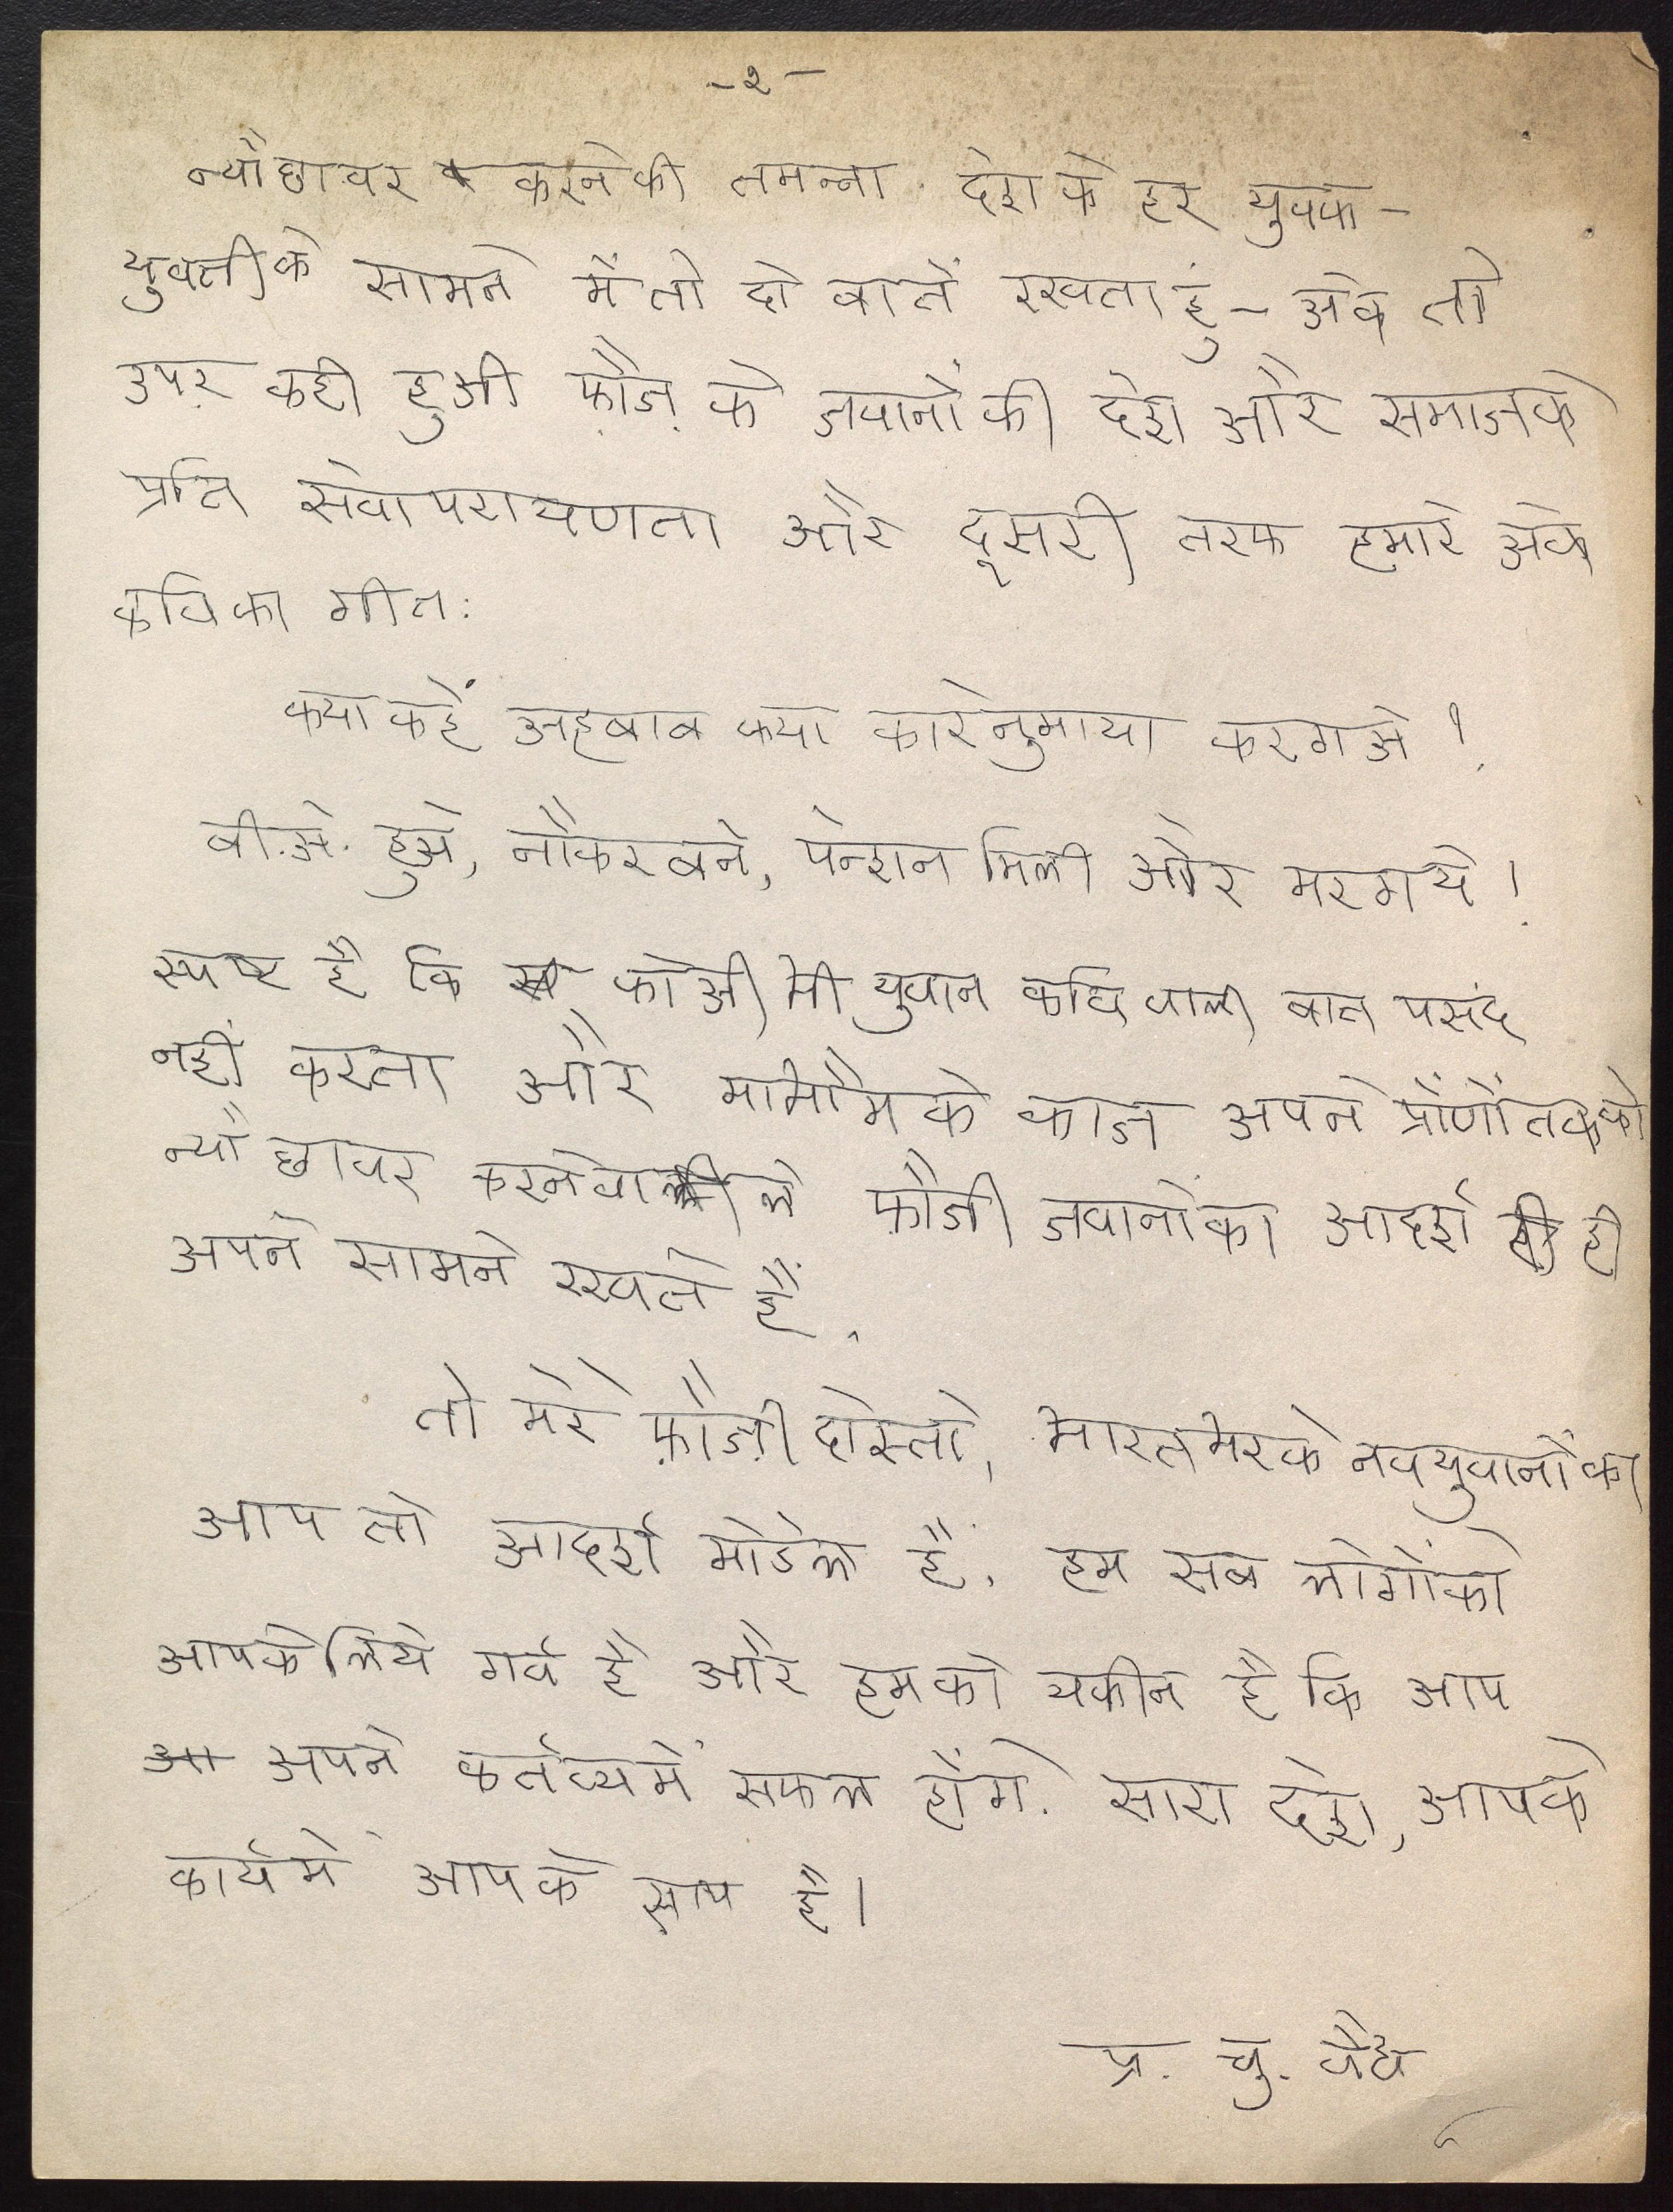 -२-
न्यौछावर करनेकी तमन्ना देश के हर युवक-
युवतीके सामने मैं तो दो बातें रखता हुं - अेक तो
उपर कही हुअी फ़ौज़ के जवानोंकी देश और समाजके
प्रति सेवापरायणता और दूसरी तरफ हमारे अेक
कविका गीत:
क्या कहें अहबाब क्या कारेनुमाया कर गअे !
बी.अे. हुअे, नौकर बने, पेन्शन मिली और मर गये !
स्पष्ट है कि कोअी भी युवान कवि वाली बात पसंद
नहीं करता और मादीमौम के काज अपने प्रौंणौंतकको
न्यौछावर करनेवाले फ़ौजी जवानोंका आदर्श ही
अपने सामने रखते हैं.
तो मेरे फ़ौज़ी दोस्तो, भारतभरके नवयुवानोंका
आप तो आदर्श मोडेल हैं. हम सब लोगोंको
आपकेलिये गर्व है और हमको यकीन है कि आप
आ अपने कर्तव्यमें सफल होंगे. सारा देश, आपके
कार्यमें आपके साथ है।
प्र. चु. वैद्य